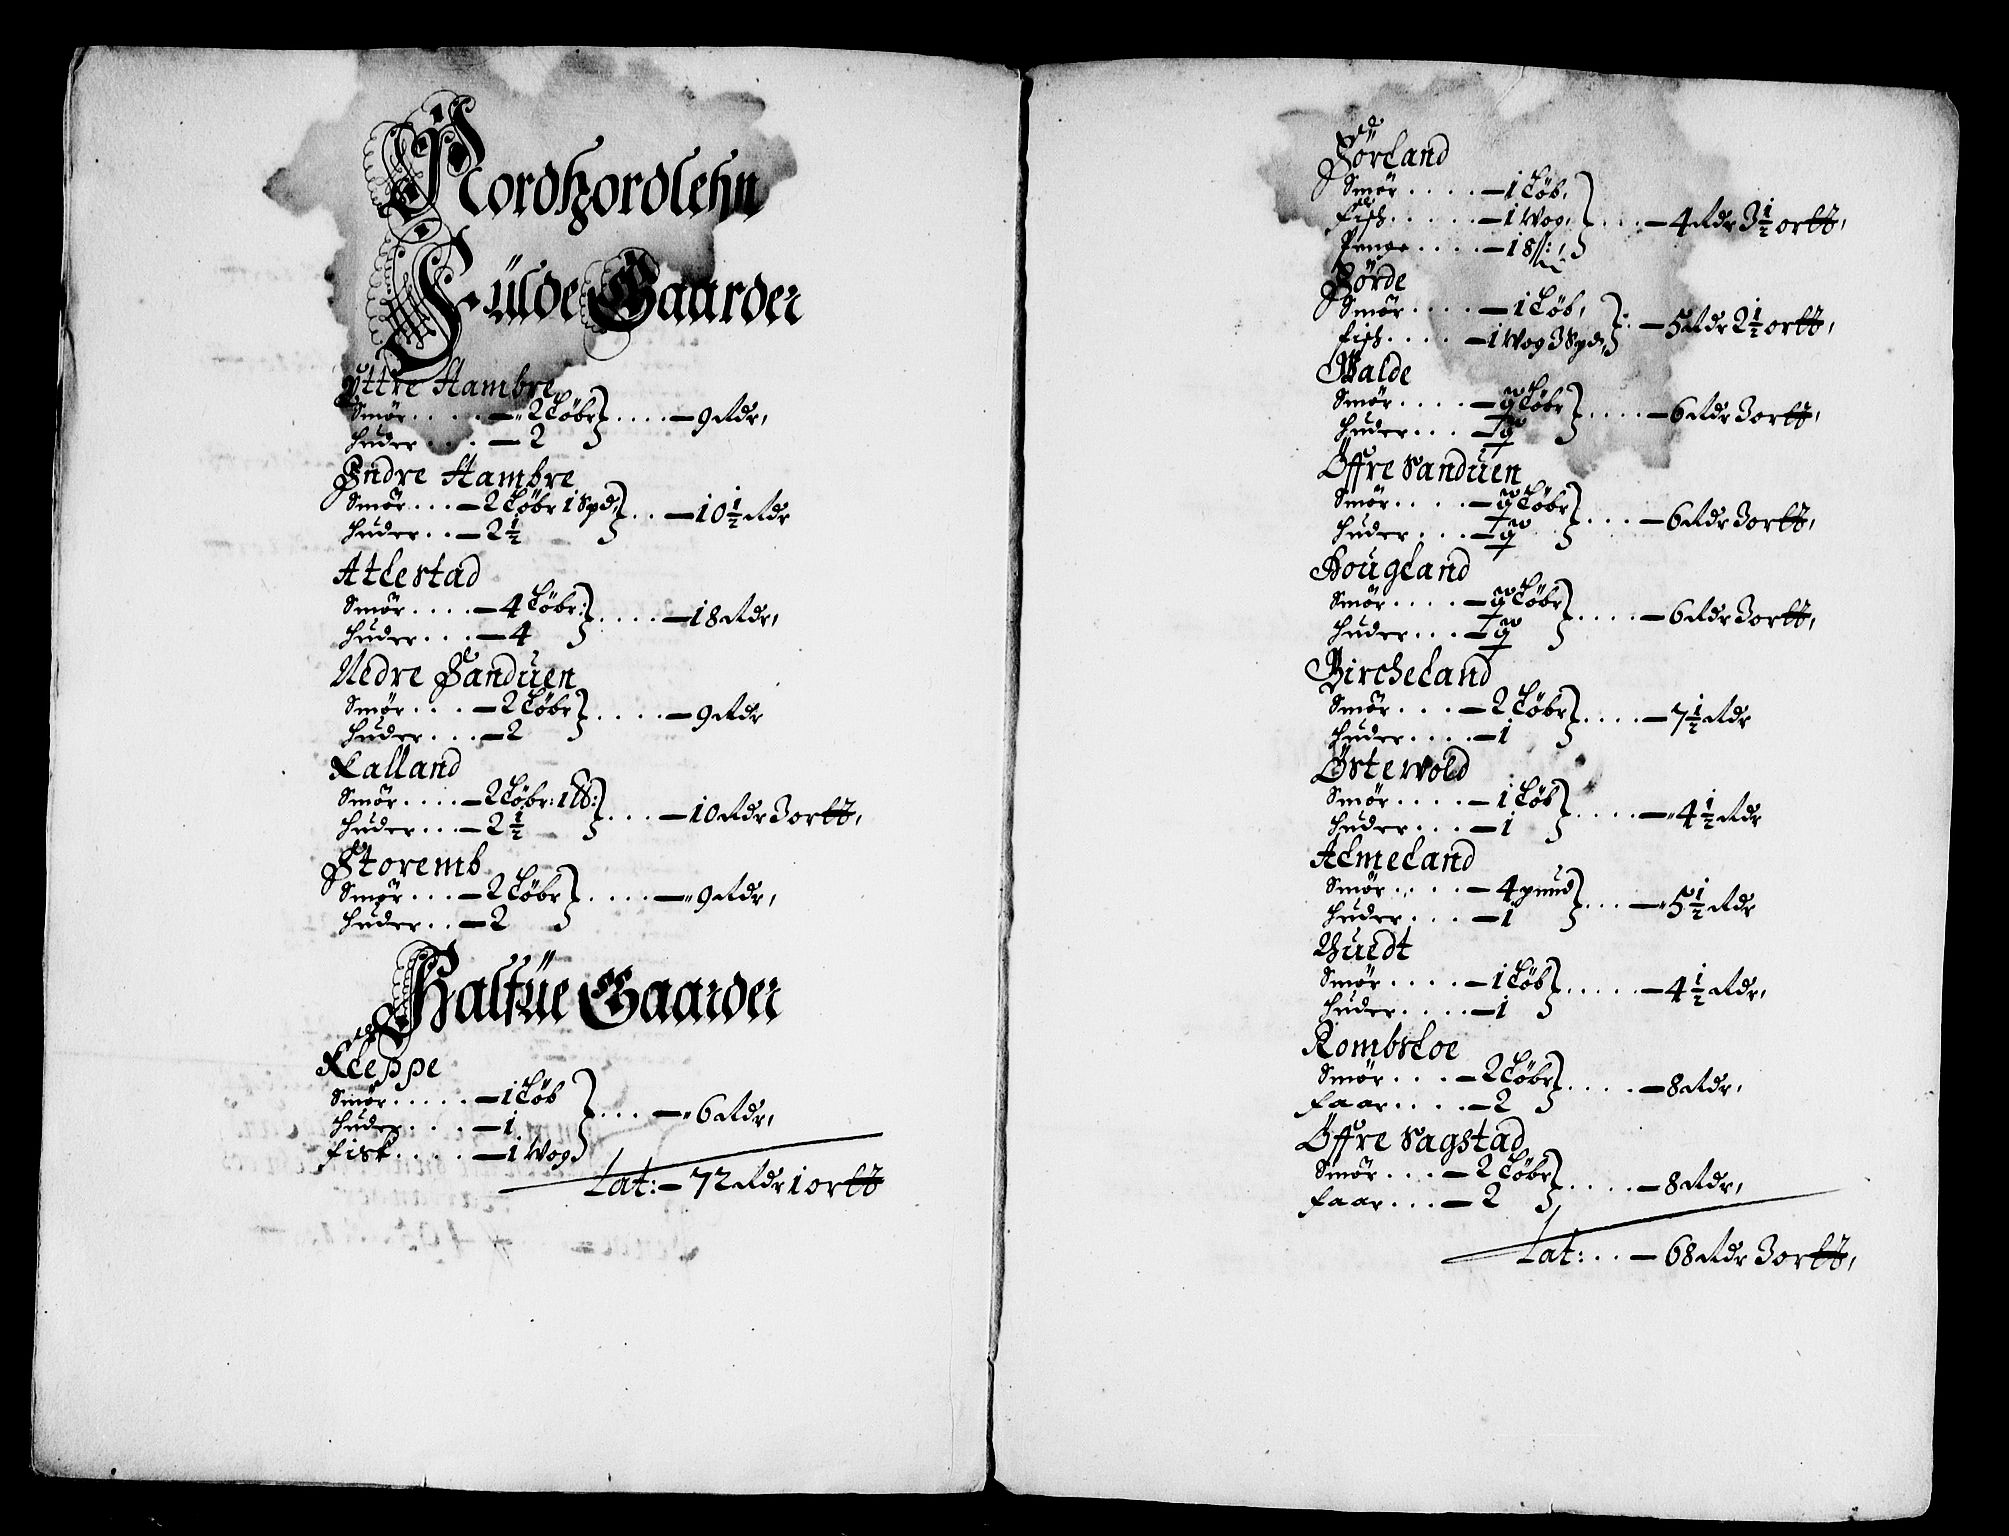 Nordhordlehn
Fülde Gaarder
Yttre Hambre
Smör . . . . — 2 Löbr } . . . . — 9 Rdr,
Huder . . . — 2
Indre Hambre
Smör . . . — 2 Löbr 1 Spd, } . . . — 10½ Rdr
Huder . . — 2½
Atlestad
Smör . . . . — 4 Löbr: } . . . . — 18 Rdr,
Huder . . . — 4
Nedre Sanduen
Smör . . . — 2 Löbr } . . . . — 9 Rdr
Huder . . . — 2
Kalland
Smör . . . . — 2 Löbr: 1 lb: } . . . — 10 Rdr 3 ortt,
Huder . . . — 2½
Storemb
Smör . . . — 2 Löbr } . . . . — 9 Rdr,
Huder . . — 2
Halfüe Gaarder
Kleppe
Smör . . . . . — 1 Löb } . . . . — 6 Rdr,
Huder . . . . — 1
Fisk . . . . — 1 Wog
Lat: — 72 Rdr 1 ortt
Hörland
Smör . . . . — 1 Löb, } . . . . — 4 Rdr 3½ ortt,
Fisk . . . . . — 1 Wog,
Penge . . . . — 18 ß:,
Börde
Smör . . . . — 1 Löb, } : — 5 Rdr 2½ ortt,
Fisk . . . . — 1 Wog 3 Spd,
Walde
Smör . . . . — Löbr } . . . . — 6 Rdr 3 ortt,
Huder . . . —
Öffre Sanduen
Smör . . . . — Löbr } . . . . — 6 Rdr 3 ortt,
Huder . . . —
Hougland
Smör . . . . — Löbr } . . . . — 6 Rdr 3 ortt,
Huder . . . —
Bircheland
Smör . . . . — 2 Löbr } . . . . — 7½ Rdr
Huder . . . . — 1
Östewold
Smör . . . . — 1 Löb } . . . . — 4½ Rdr
Huder . . . — 1
Almeland
Smör . . . . — 4 pund } . . . — 5½ Rdr
Huder . . . . — 1
Huedt
Smör . . . . — 1 Löb } . . . . . — 4½ Rdr,
Huder . . . . — 1
Rombsloe
Smör . . . . — 2 Löbr } . . . . — 8 Rdr,
Faar . . . . — 2
Öffre Sagstad
Smör . . . — 2 Löbr } . . . . — 8 Rdr,
Faar . . . — 2
Lat: . . — 68 Rdr 3 ortt,